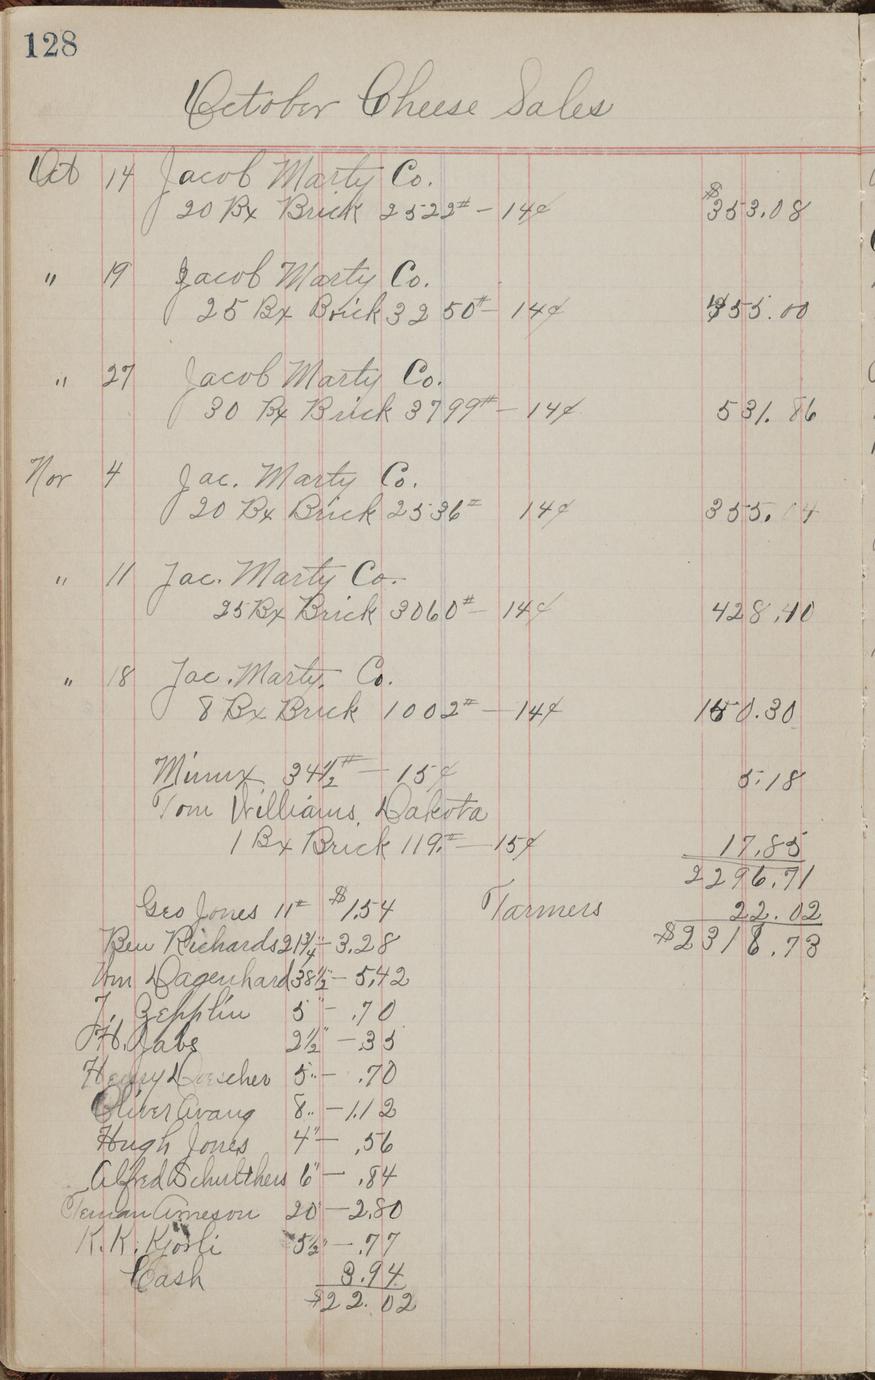 128
October Cheese Sales
Oct 14 Jacob Marty Co.
20 Bx Brick 2522# - 14¢ $353.08
" 19 Jacob Marty Co.
25 Bx Brick 3250# - 14¢ 455.00
" 27 Jacob Marty Co.
30 Bx Brick 3799# - 14¢ 531.86
Nov 4 Jac. Marty Co.
20 Bx Brick 2536# 14¢ 355.04
" 11 Jac. Marty Co.
25 Bx Brick 3060# - 14¢ 428.40
" 18 Jac. Marty. Co.
8 Bx Brick 1002# - 14¢ 150.30
34 1/2# - 15¢ 5.18
Tom Williams, Dakota
1 Bx Brick 119.# - 15¢ 17.85
2296.71
Geo Jones 11# $1.54 Farmers 22.02
Ben Richards 21 3/4 - 3.28 $2318.73
Wm Dagenhard 38 1/2 - 5.42
J. Zepplin 5" - .70
H. Jabs 2 1/2" - .35
Henry Doescher 5" - .70
Oliver Avang 8" - 1.12
Hugh Jones 4" - .56
Alfred Schulthers 6" - .84
Ameson 20" - 2.80
K. K. 5 1/2" - .77
Cash 3.94
$22.02